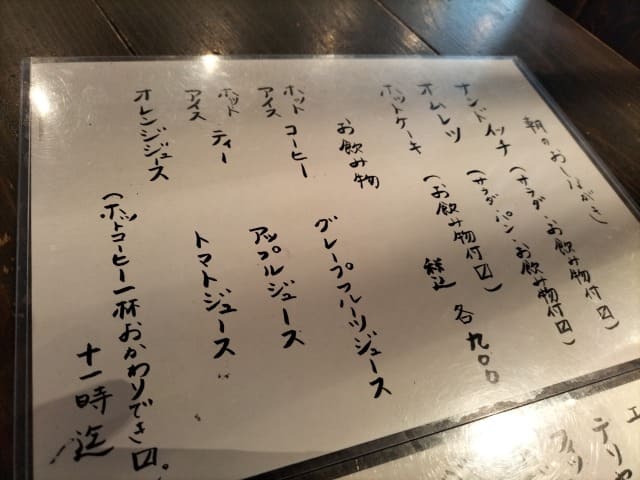 朝のおしながき
サンドイッチ (サラダ・お飲み物付〼)
オムレツ (サラダ・パン・お飲み物付〼)
ホットケーキ (お飲み物付〼)
税込 各九〇〇
お飲み物
ホット
アイス コーヒー
ホット
アイス ティー
オレンジジュース
グレープフルーツジュース
アップルジュース
トマトジュース
(ホットコーヒー一杯おかわりでき〼。
十一時迄